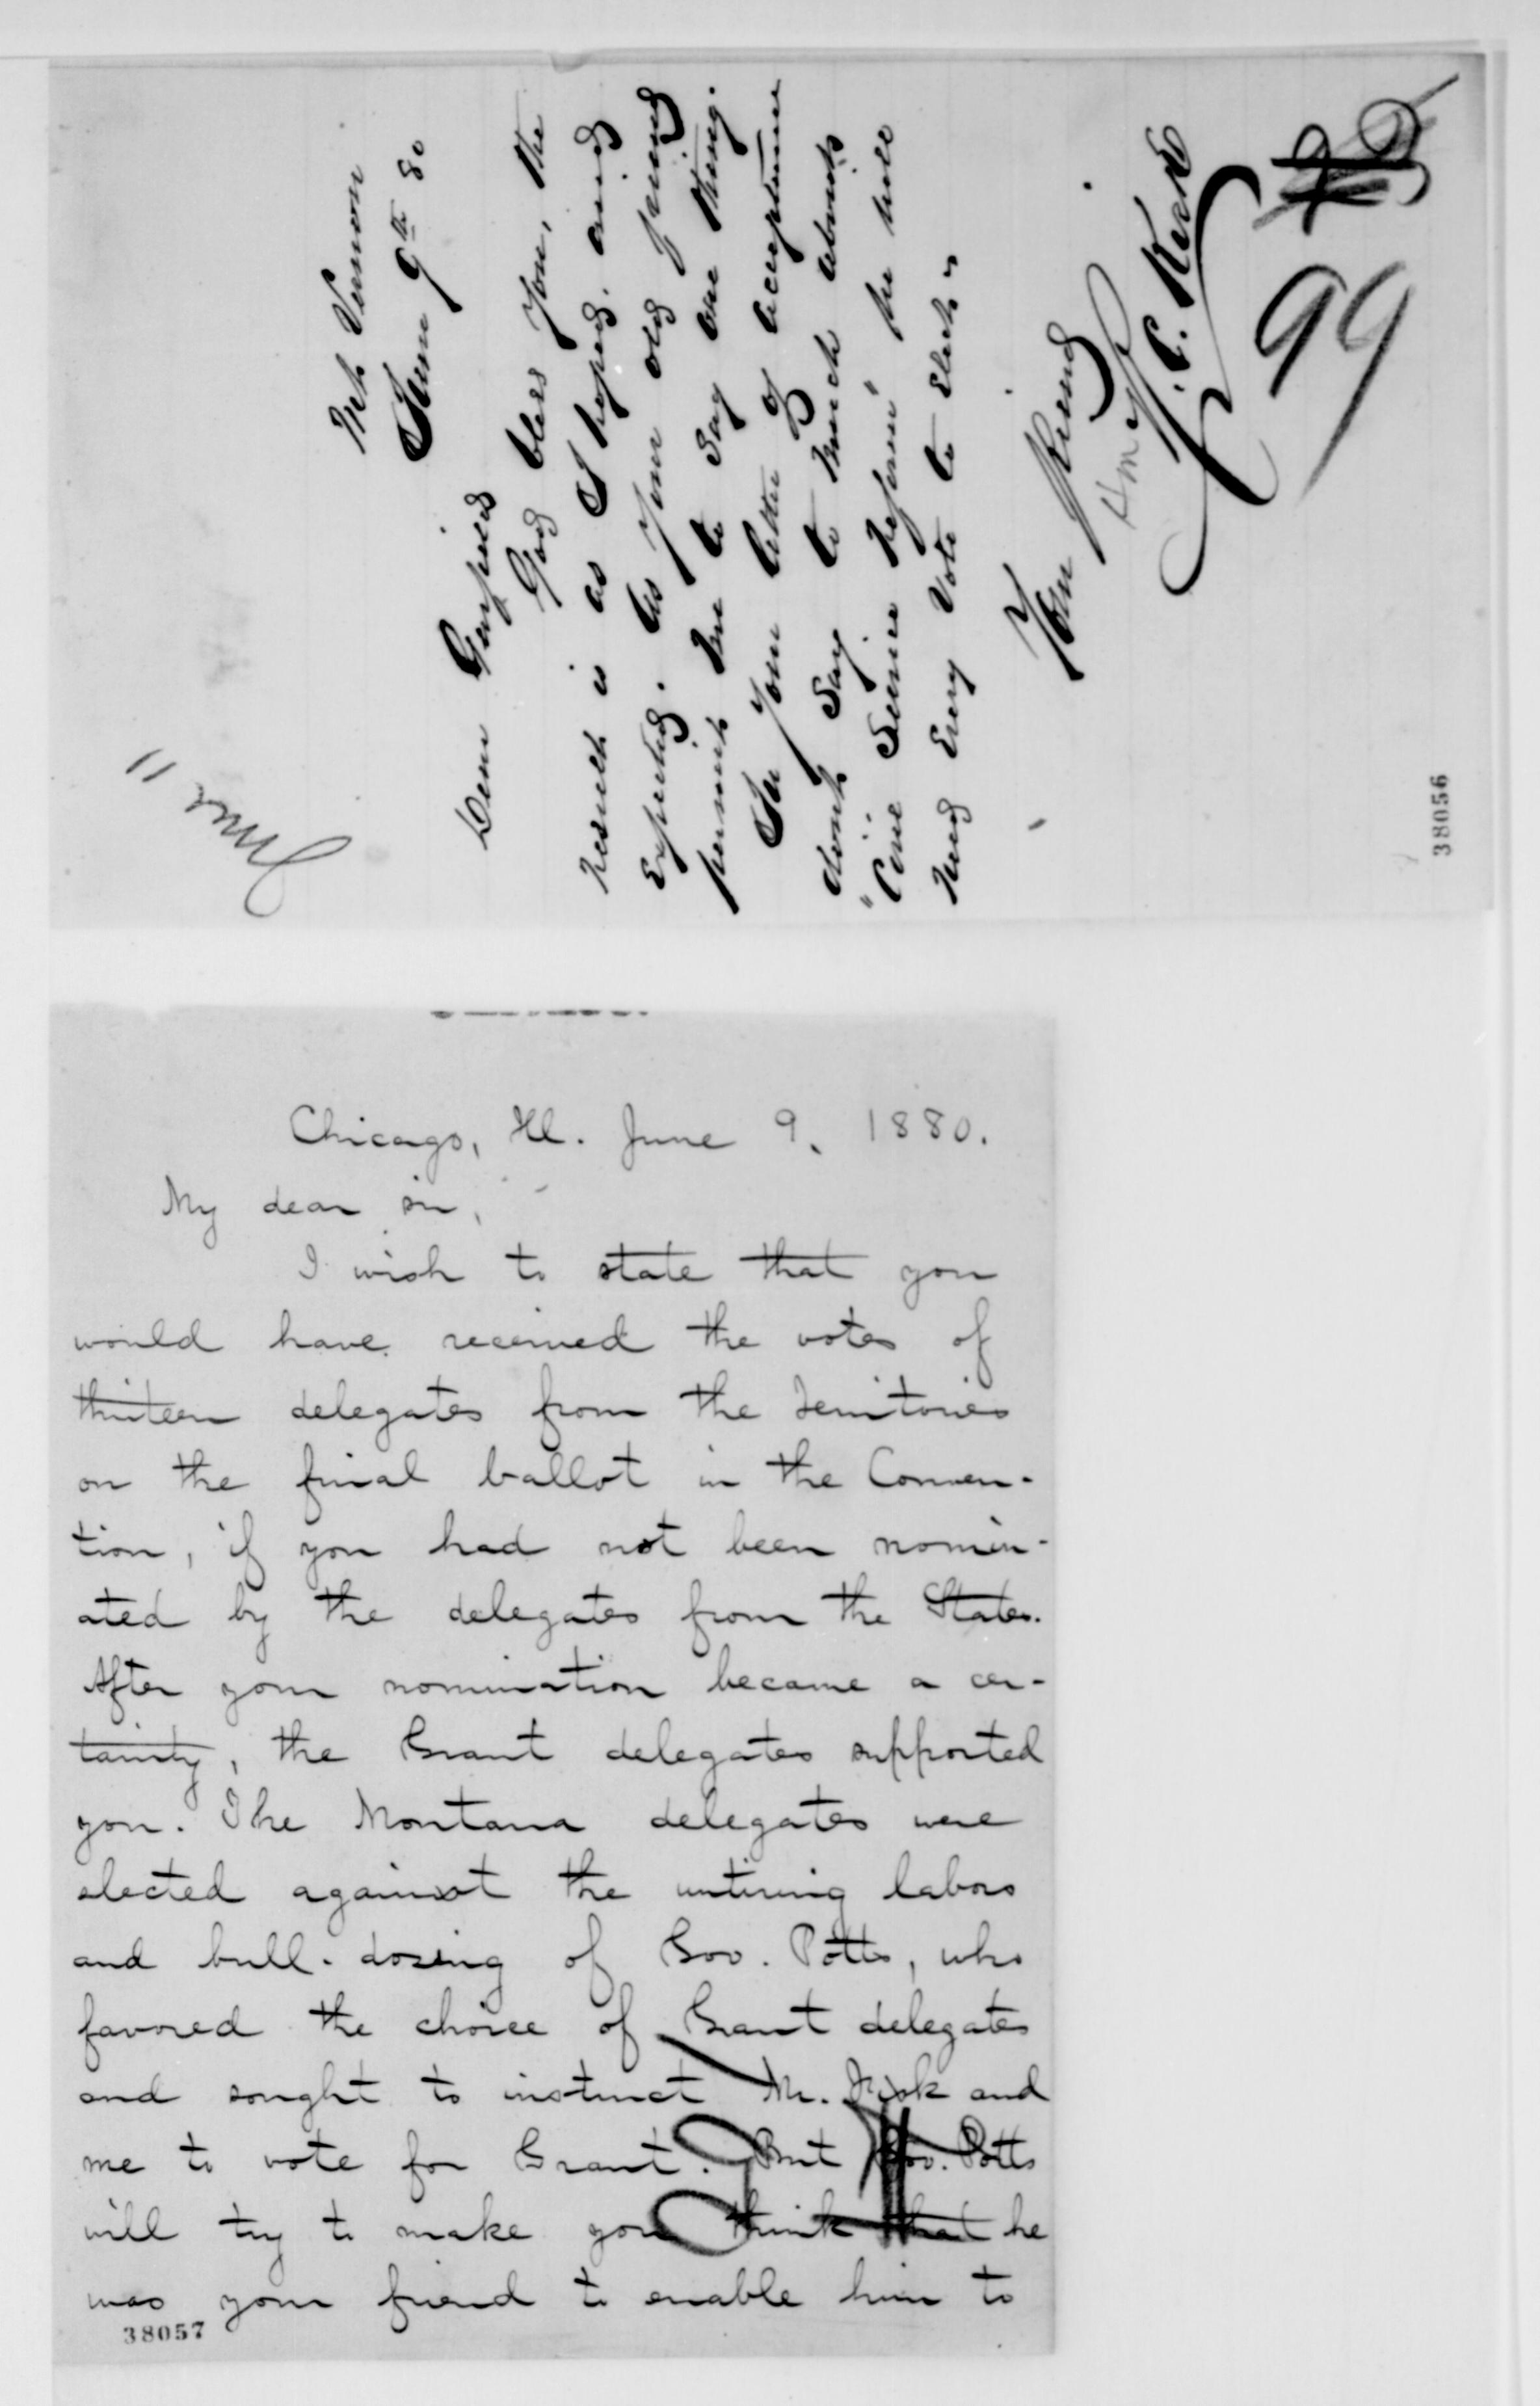 Mt Vernon
June 9th 80
Dear Garfield
God bless you, the
result is as I hoped. and
Expected. As your old friend
permit me to say one thing.
In your letter of acceptance
dont say to much about
"Civil Service Reform" we will
need Every Vote to Elect.
Your friend
99
38056
Chicago, Ill. June 9, 1880.
My dear sir,
I wish to state that you
would have received the votes of
thirteen delegates from the Territories
on the final ballot in the Conven-
tion, if you had not been nomin-
ated by the delegates from the States.
After your nomination became a cer-
tainty, the Grant delegates supported
you. The Montana delegates were
elected against the untiring labors
and bull-dozing of Gov. Potts, who
favored the choice of Grant delegates
and sought to instruct Mr. Fisk and
me to vote for Grant. But Gov. Potts
will try to make you think that he
was your friend to enable him to
38057